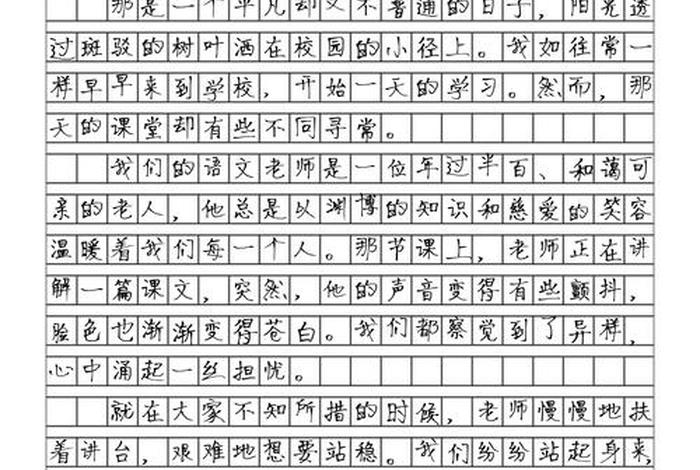 那是一个平凡却又不普通的日子，阳光透
过斑驳的树叶洒在校园的小径上。我如往常一
样早早来到学校，开始一天的学习。然而，那
天的课堂却有些不同寻常。
我们的语文老师是一位年过半百、和蔼可
亲的老人，他总是以渊博的知识和慈爱的笑容
温暖着我们每一个人。那节课上，老师正在讲
解一篇课文，突然，他的声音变得有些颤抖，
脸色也渐渐变得苍白。我们都察觉到了异样，
心中涌起一丝担忧。
就在大家不知所措的时候，老师慢慢地扶
着讲台，艰难地想要站稳。我们纷纷站起身来，